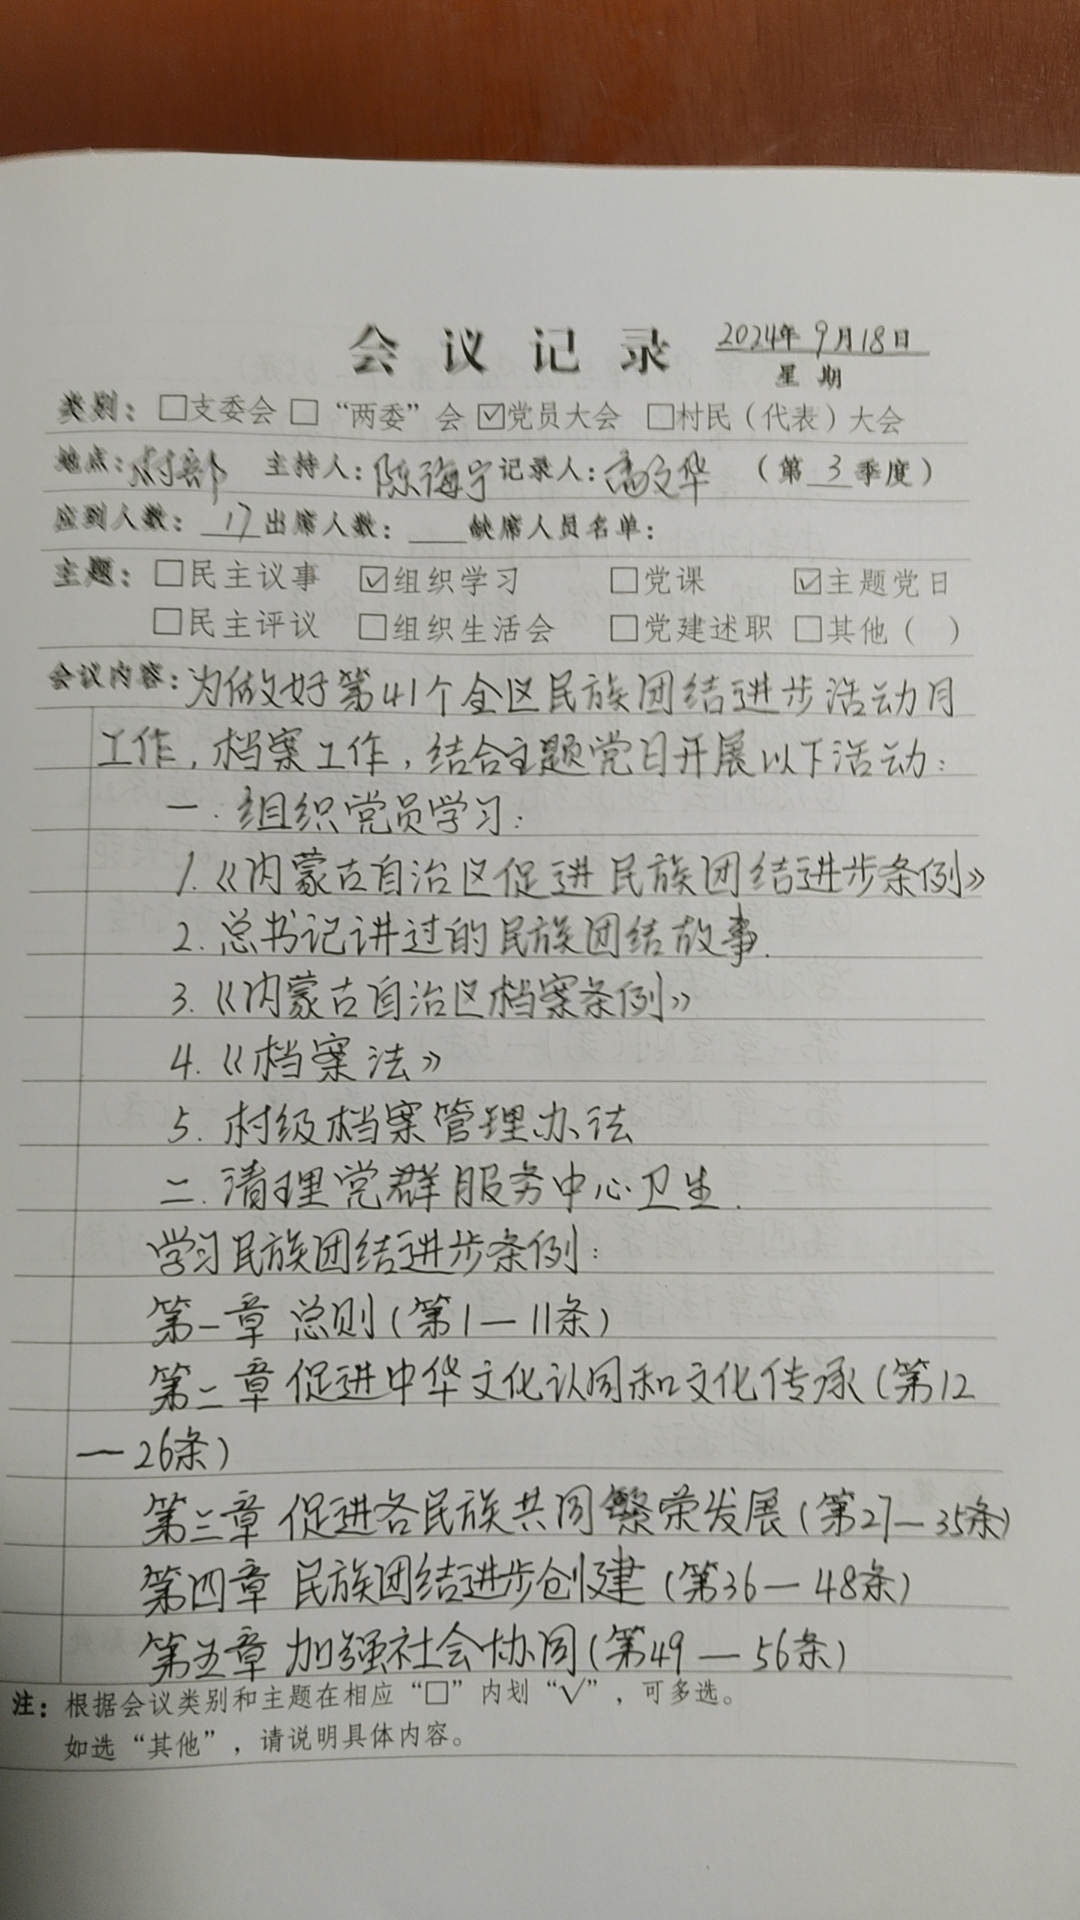 会议记录 2024年9月18日
星期
类别：□支委会 □“两委”会 ☑党员大会 □村民（代表）大会
地点：村部 主持人：陈海宁 记录人：高文华 （第3季度）
应到人数：17 出席人数： 缺席人员名单：
主题：□民主议事 ☑组织学习 □党课 ☑主题党日
□民主评议 □组织生活会 □党建述职 □其他（ ）
会议内容：为做好第41个全区民族团结进步活动月
工作，档案工作，结合主题党日开展以下活动：
一.组织党员学习：
1.《内蒙古自治区促进民族团结进步条例》
2.总书记讲过的民族团结故事.
3.《内蒙古自治区档案条例》
4.《档案法》
5.村级档案管理办法
二.清理党群服务中心卫生.
学习民族团结进步条例：
第一章 总则（第1—11条）
第二章 促进中华文化认同和文化传承（第12
—26条）
第三章 促进各民族共同繁荣发展（第27—35条）
第四章 民族团结进步创建（第36—48条）
第五章 加强社会协同（第49—56条）
注：根据会议类别和主题在相应“□”内划“√”，可多选。
如选“其他”，请说明具体内容。